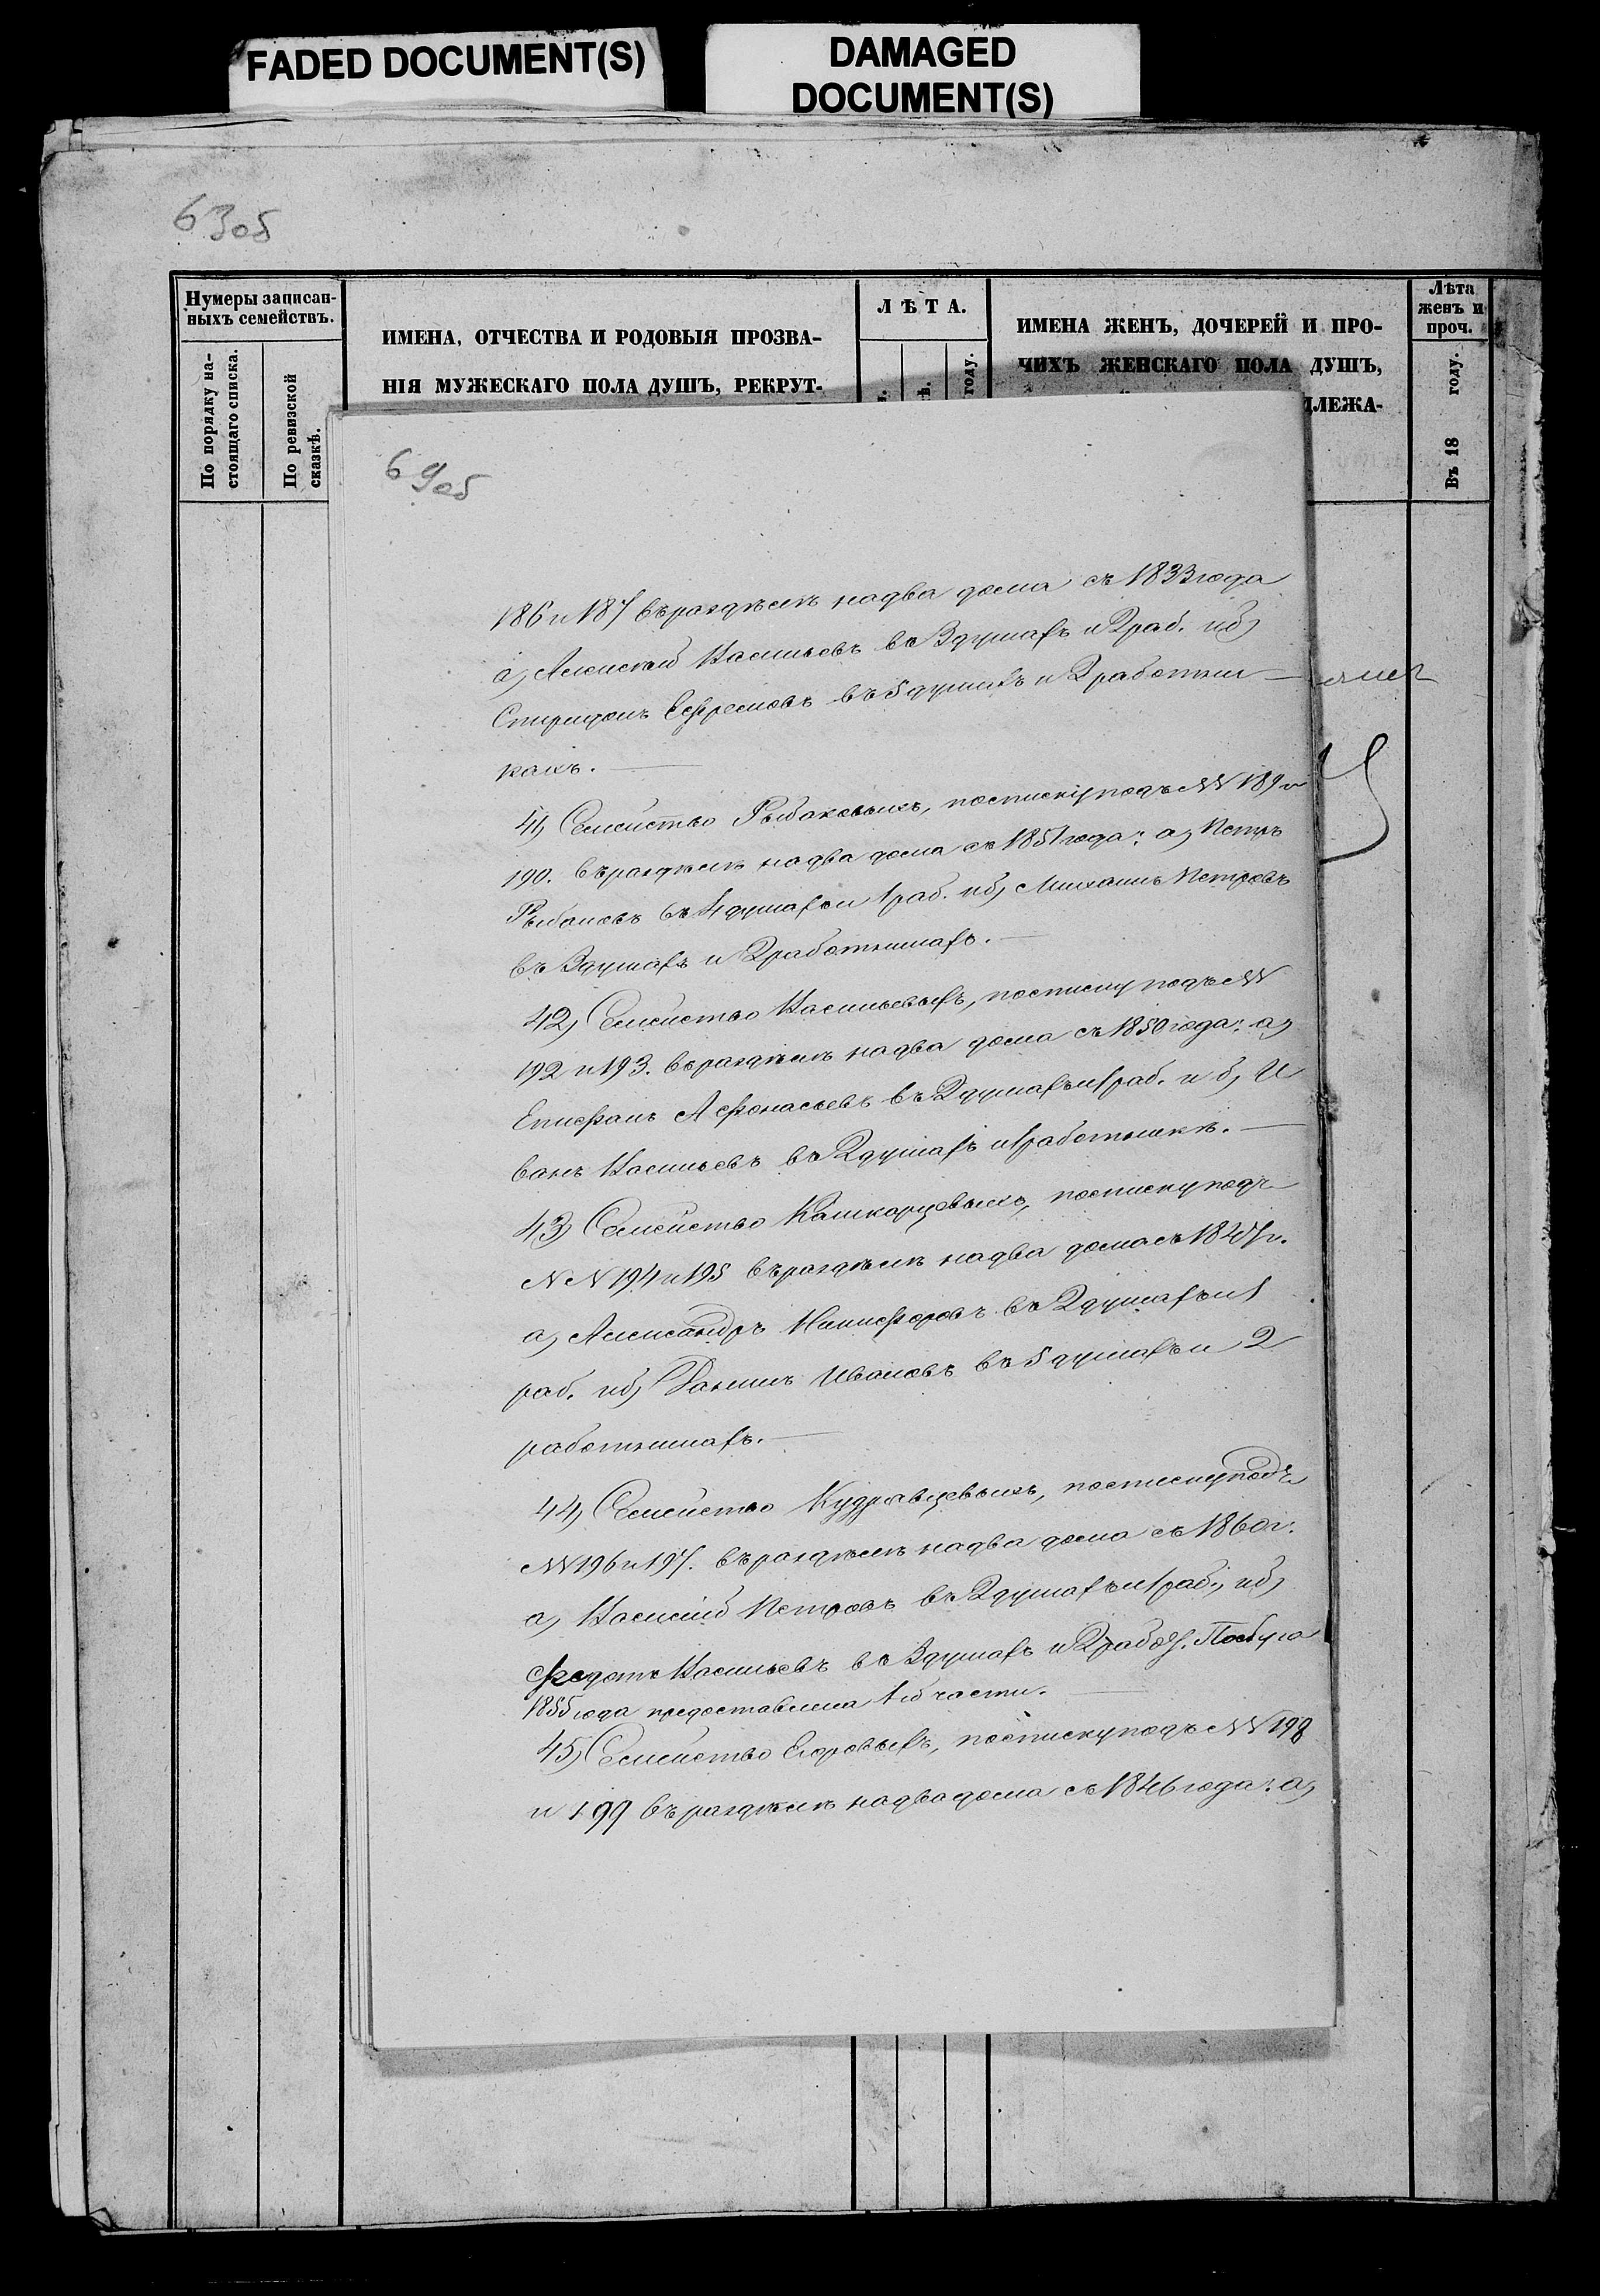 FADED DOCUMENT(S)
DAMAGED
DOCUMENT(S)
63об
Нумеры записан-
ныхъ семействъ.
По порядку на-
стоящаго списка.
По ревизской
сказкѣ.
ИМЕНА, ОТЧЕСТВА И РОДОВЫЯ ПРОЗВА-
НІЯ МУЖЕСКАГО ПОЛА ДУШЪ, РЕКРУТ-
ЛѢТА.
году.
ИМЕНА ЖЕНЪ, ДОЧЕРЕЙ И ПРО-
ЧИХЪ ЖЕНСКАГО ПОЛА ДУШЪ,
ДЛЕЖА-
Лѣта
женъ и
проч.
Въ 18 году.
69об
186 и 187 въ раздѣлѣ на два дома съ 1833 года
а, Алексѣй Васильевъ въ 3 душахъ и 2 раб. и б,
Спиридонъ Ефремовъ въ 5 душахъ и 2 работни-
кахъ.
41, Семейство Рыбаковыхъ, по списку подъ NN 189 и
190. въ раздѣлѣ на два дома съ 1851 года: а, Петръ
Рыбаковъ въ 4 душахъ и 1 раб. и б, Михаилъ Петровъ
въ 3 душахъ и 2 работникахъ.
42, Семейство Васильевыхъ, по списку подъ NN
192 и 193. въ раздѣлѣ на два дома съ 1850 года: а,
Епифанъ Афонасьевъ въ 2 душахъ и 1 раб. и б, И
ванъ Васильевъ въ 2 душахъ и 1 работникѣ.
43, Семейство Кашкарцовыхъ, по списку подъ
NN 194 и 195 въ раздѣлѣ на два дома съ г.
а, Александръ Никифоровъ въ 2 душахъ и 1
раб. и б, Данилъ Ивановъ въ 5 душахъ и 2
работникахъ.
44, Семейство Кудрявцевыхъ, по списку подъ
NN 196 и 197. въ раздѣлѣ на два дома съ 1860 г.
а, Василій Петровъ въ 2 душахъ и 1 раб., и б,
Федотъ Васильевъ въ 3 душахъ и 2 раб.
1855 года предоставлена 1й части.
45, Семейство Егоровыхъ, по списку подъ NN 198
и 199 въ раздѣлѣ на два дома съ 1846 года: а,